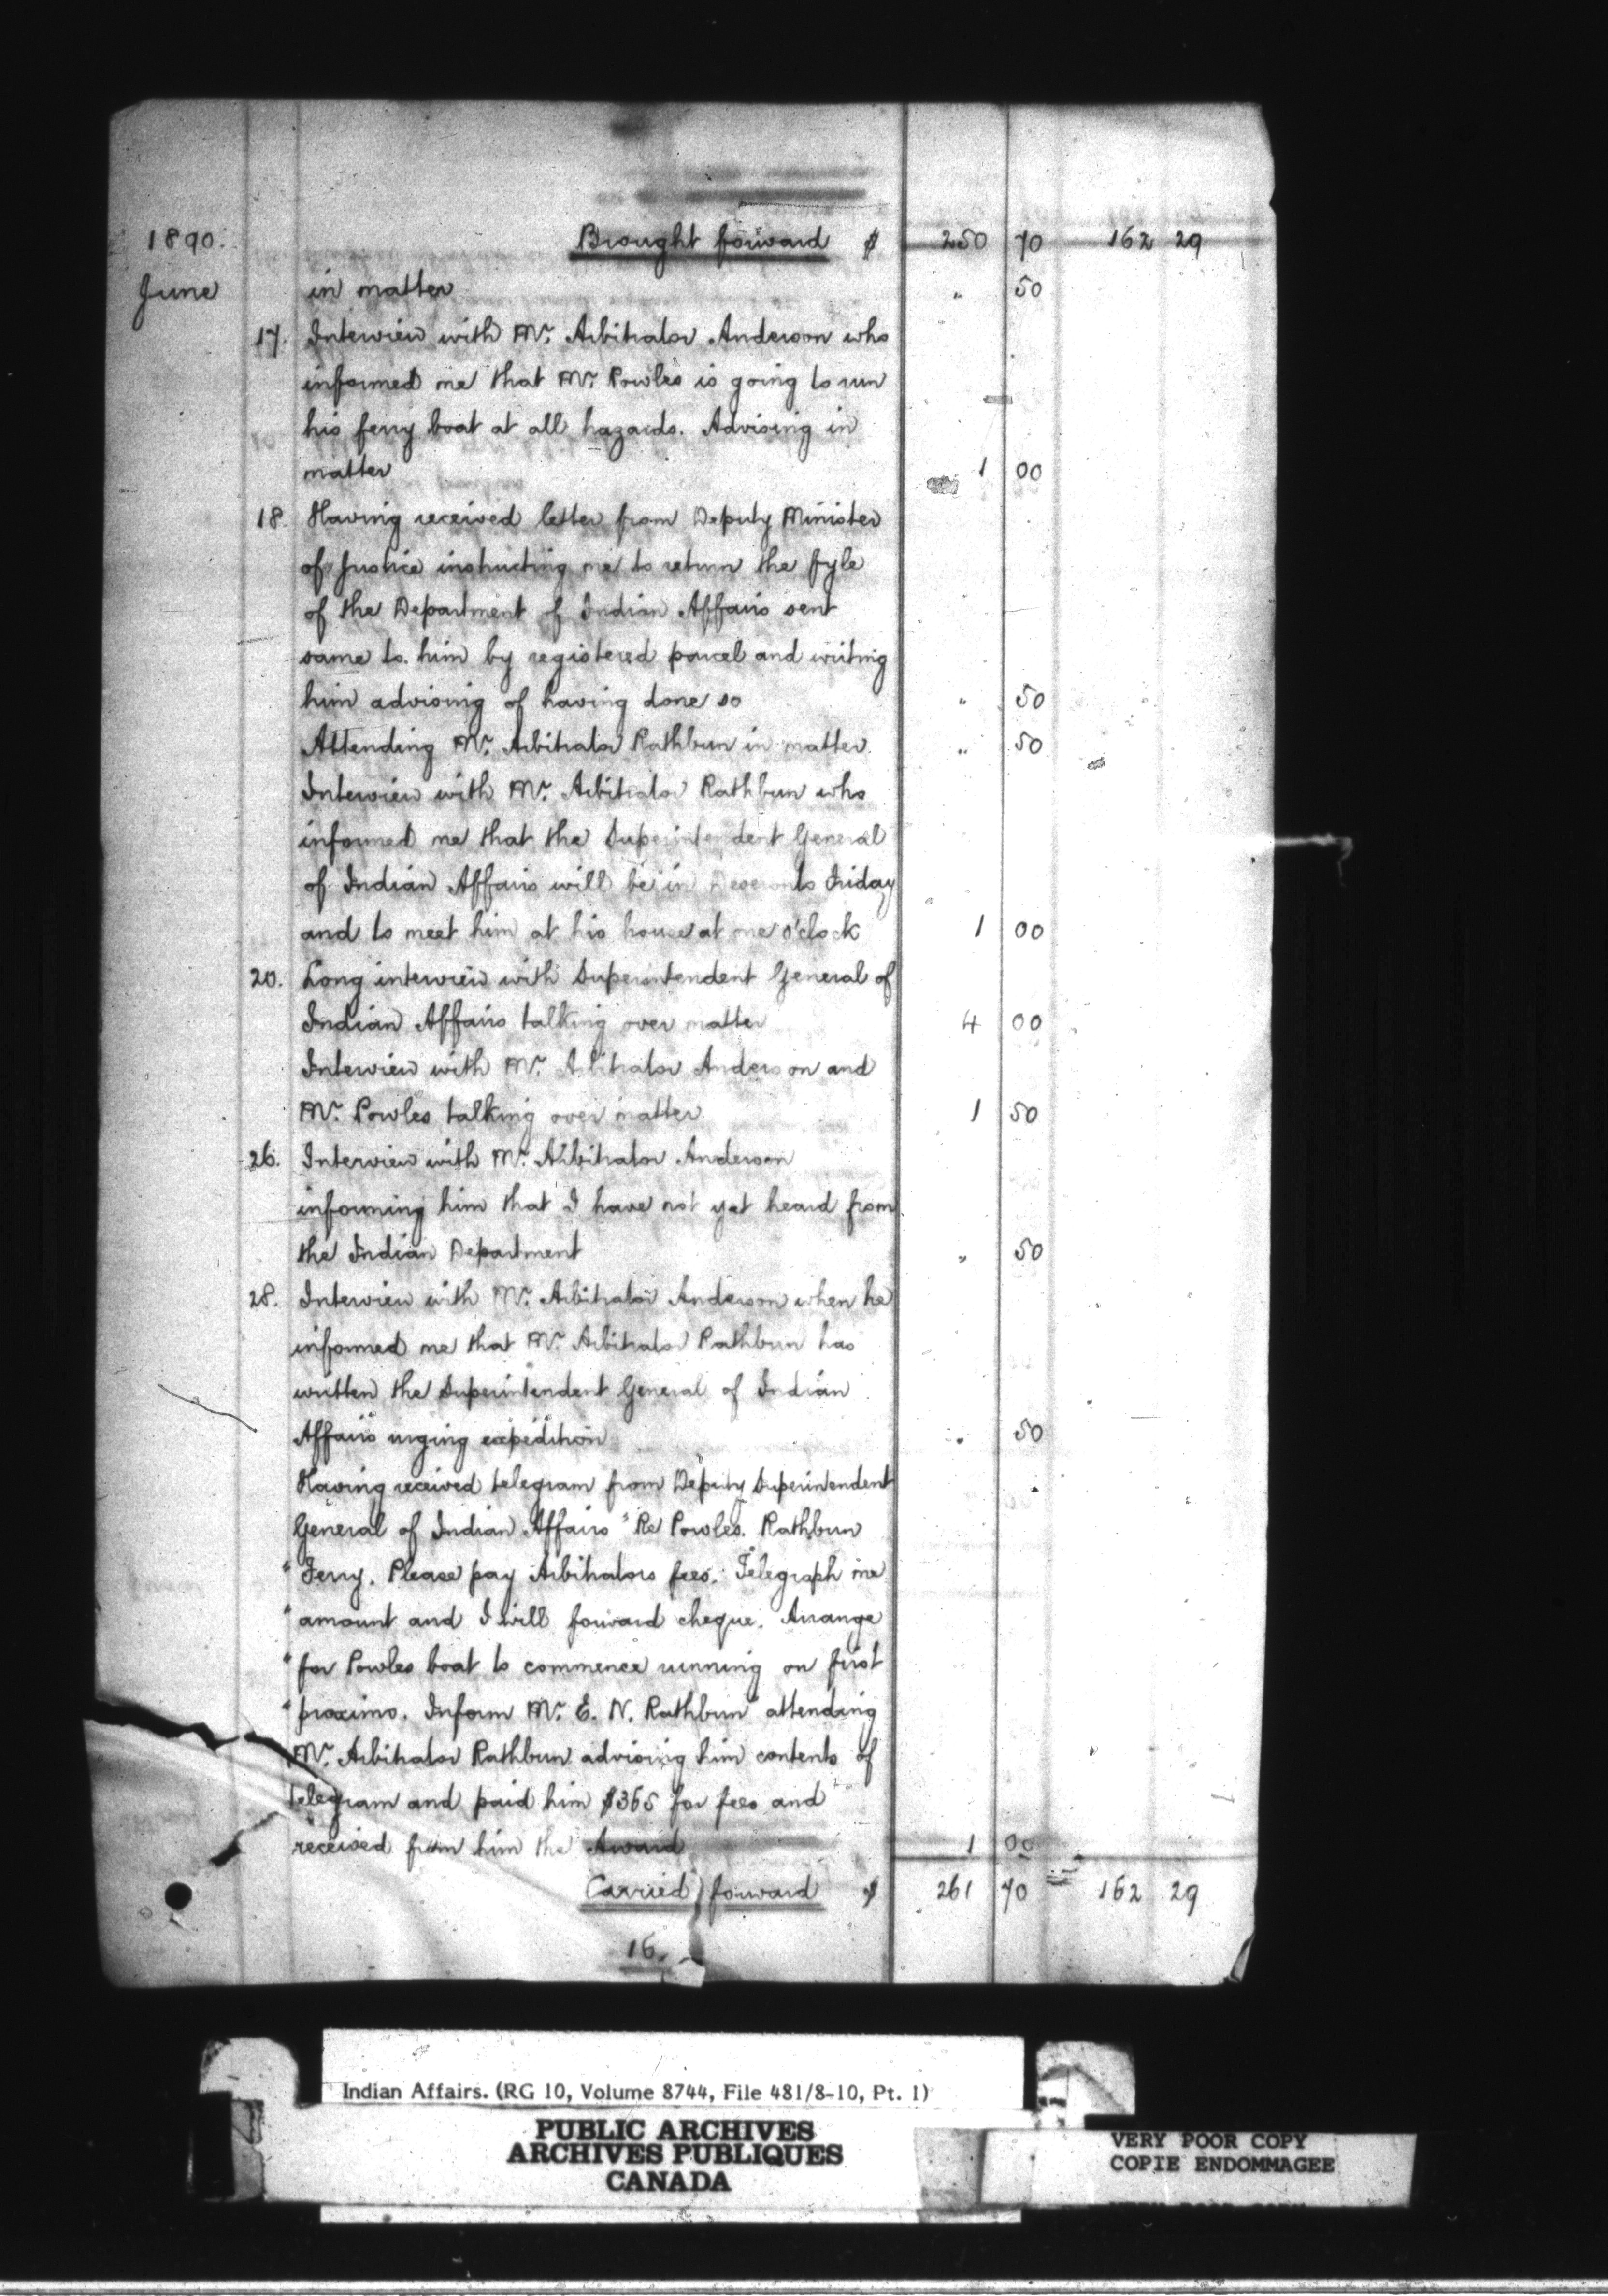 1890. Brought forward $ 250 70 162 29
June in matter " 50
17. Interview with Mr. Arbitrator Anderson who
informed me that Mr. Powles is going to run
his ferry boat at all hazards. Advising in
matter 1 00
18. Having received letter from Deputy Minister
of Justice instructing me to return the fyle
of the Department of Indian Affairs sent
same to him by registered parcel and writing
him advising of having done so " 50
Attending Mr. Arbitrator Rathbun in matter. " 50
Interview with Mr. Arbitrator Rathbun who
informed me that the Superintendent General
of Indian Affairs will be in Deseronto Friday
and to meet him at his house at one o'clock 1 00
20. Long interview with Superintendent General of
Indian Affairs talking over matter 4 00
Interview with Mr. Arbitrator Anderson and
Mr. Powles talking over matter 1 50
26. Interview with Mr. Arbitrator Anderson
informing him that I have not yet heard from
the Indian Department " 50
28. Interview with Mr. Arbitrator Anderson when he
informed me that Mr. Arbitrator Rathbun has
written the Superintendent General of Indian
Affairs urging expedition " 50
Having received telegram from Deputy Superintendent
General of Indian Affairs "Re Powles. Rathbun
"Ferry. Please pay Arbitrators fees. Telegraph me
"amount and I will forward cheque. Arrange
"for Powles boat to commence running on first
"proximo. Inform Mr. E. N. Rathbun" attending
Mr. Arbitrator Rathbun advising him contents of
telegram and paid him $365 for fees and
received from him the Award 1 00
Carried forward $ 261 70 162 29
16.
Indian Affairs. (RG 10, Volume 8744, File 481/8-10, Pt. 1)
PUBLIC ARCHIVES
ARCHIVES PUBLIQUES
CANADA
VERY POOR COPY
COPIE ENDOMMAGEE